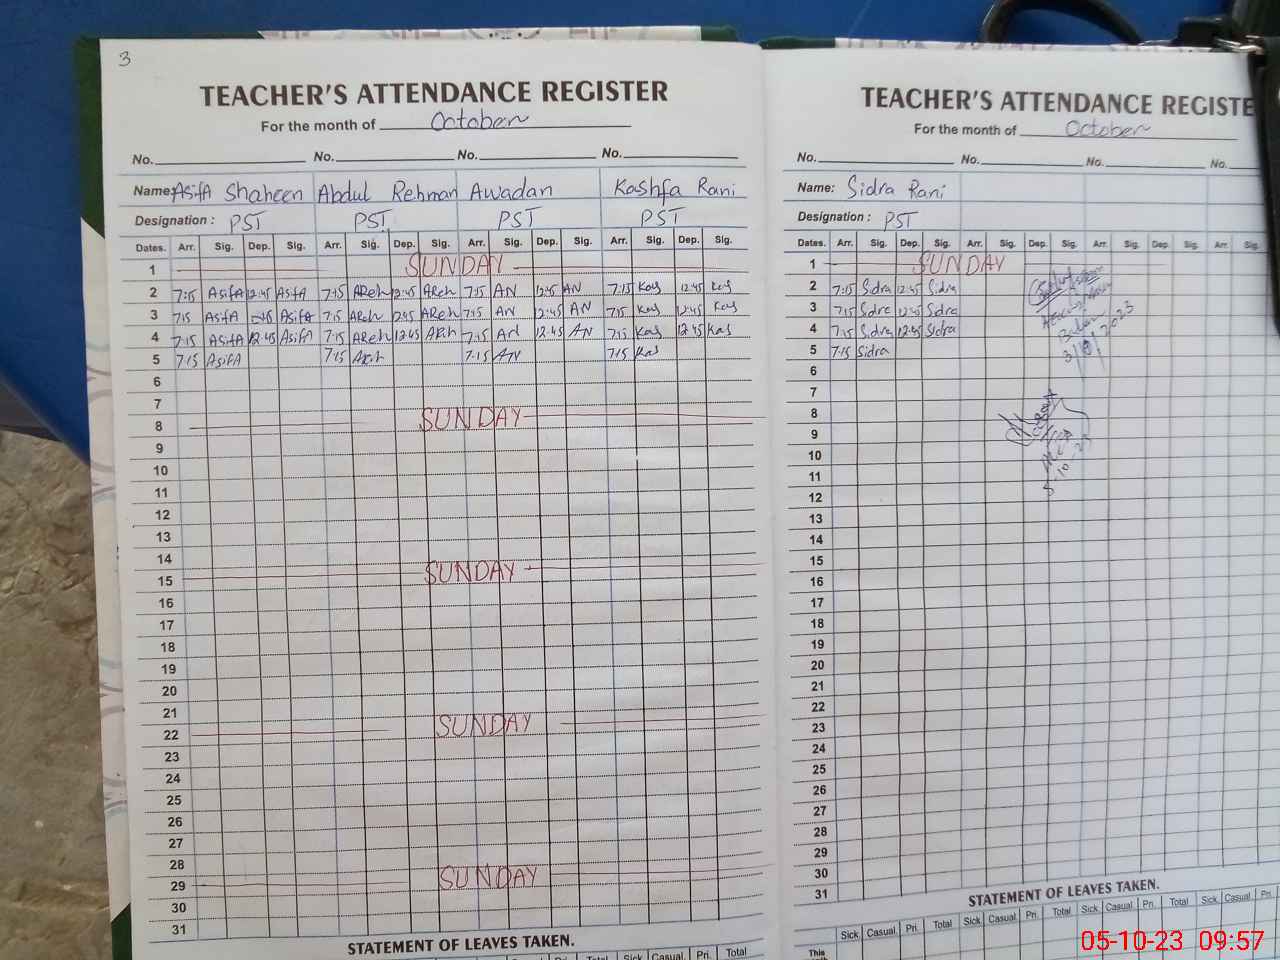 3
TEACHER'S ATTENDANCE REGISTER
For the month of October
No. No. No. No.
Name: Asifa Shaheen Abdul Rehman Awadan Kashfa Rani
Designation : PST PST PST PST
Dates. Arr. Sig. Dep. Sig. Arr. Sig. Dep. Sig. Arr. Sig. Dep. Sig. Arr. Sig. Dep. Sig.
1 SUNDAY
2 7:15 Asifa 12:45 Asifa 7:15 AReh 12:45 AReh 7:15 AN 12:45 AN 7:15 Kas 12:45 Kas
3 7:15 Asifa 12:45 Asifa 7:15 AReh 12:45 AReh 7:15 AN 12:45 AN 7:15 Kas 12:45 Kas
4 7:15 Asifa 12:45 Asifa 7:15 AReh 12:45 AReh 7:15 AN 12:45 AN 7:15 Kas 12:45 Kas
5 7:15 Asifa 7:15 AReh 7:15 AN 7:15 Kas
6
7
8 SUNDAY
9
10
11
12
13
14
15 SUNDAY
16
17
18
19
20
21
22 SUNDAY
23
24
25
26
27
28
29 SUNDAY
30
31
STATEMENT OF LEAVES TAKEN.
Sick Casual Pri. Total Sick Casual Pri. Total
TEACHER'S ATTENDANCE REGISTE
For the month of October
No. No. No. No.
Name: Sidra Rani
Designation : PST
Dates. Arr. Sig. Dep. Sig. Arr. Sig. Dep. Sig. Arr. Sig. Dep. Sig. Arr. Sig.
1 SUNDAY
2 7:15 Sidra 12:45 Sidra
3 7:15 Sidra 12:45 Sidra
4 7:15 Sidra 12:45 Sidra
5 7:15 Sidra
6
7
8
9
10
11
12
13
14
15
16
17
18
19
20
21
22
23
24
25
26
27
28
29
30
31
3/10/2023
STATEMENT OF LEAVES TAKEN.
Sick Casual Pri. Total Sick Casual Pri. Total Sick Casual Pri. Total Sick Casual Pri.
This
05-10-23 09:57